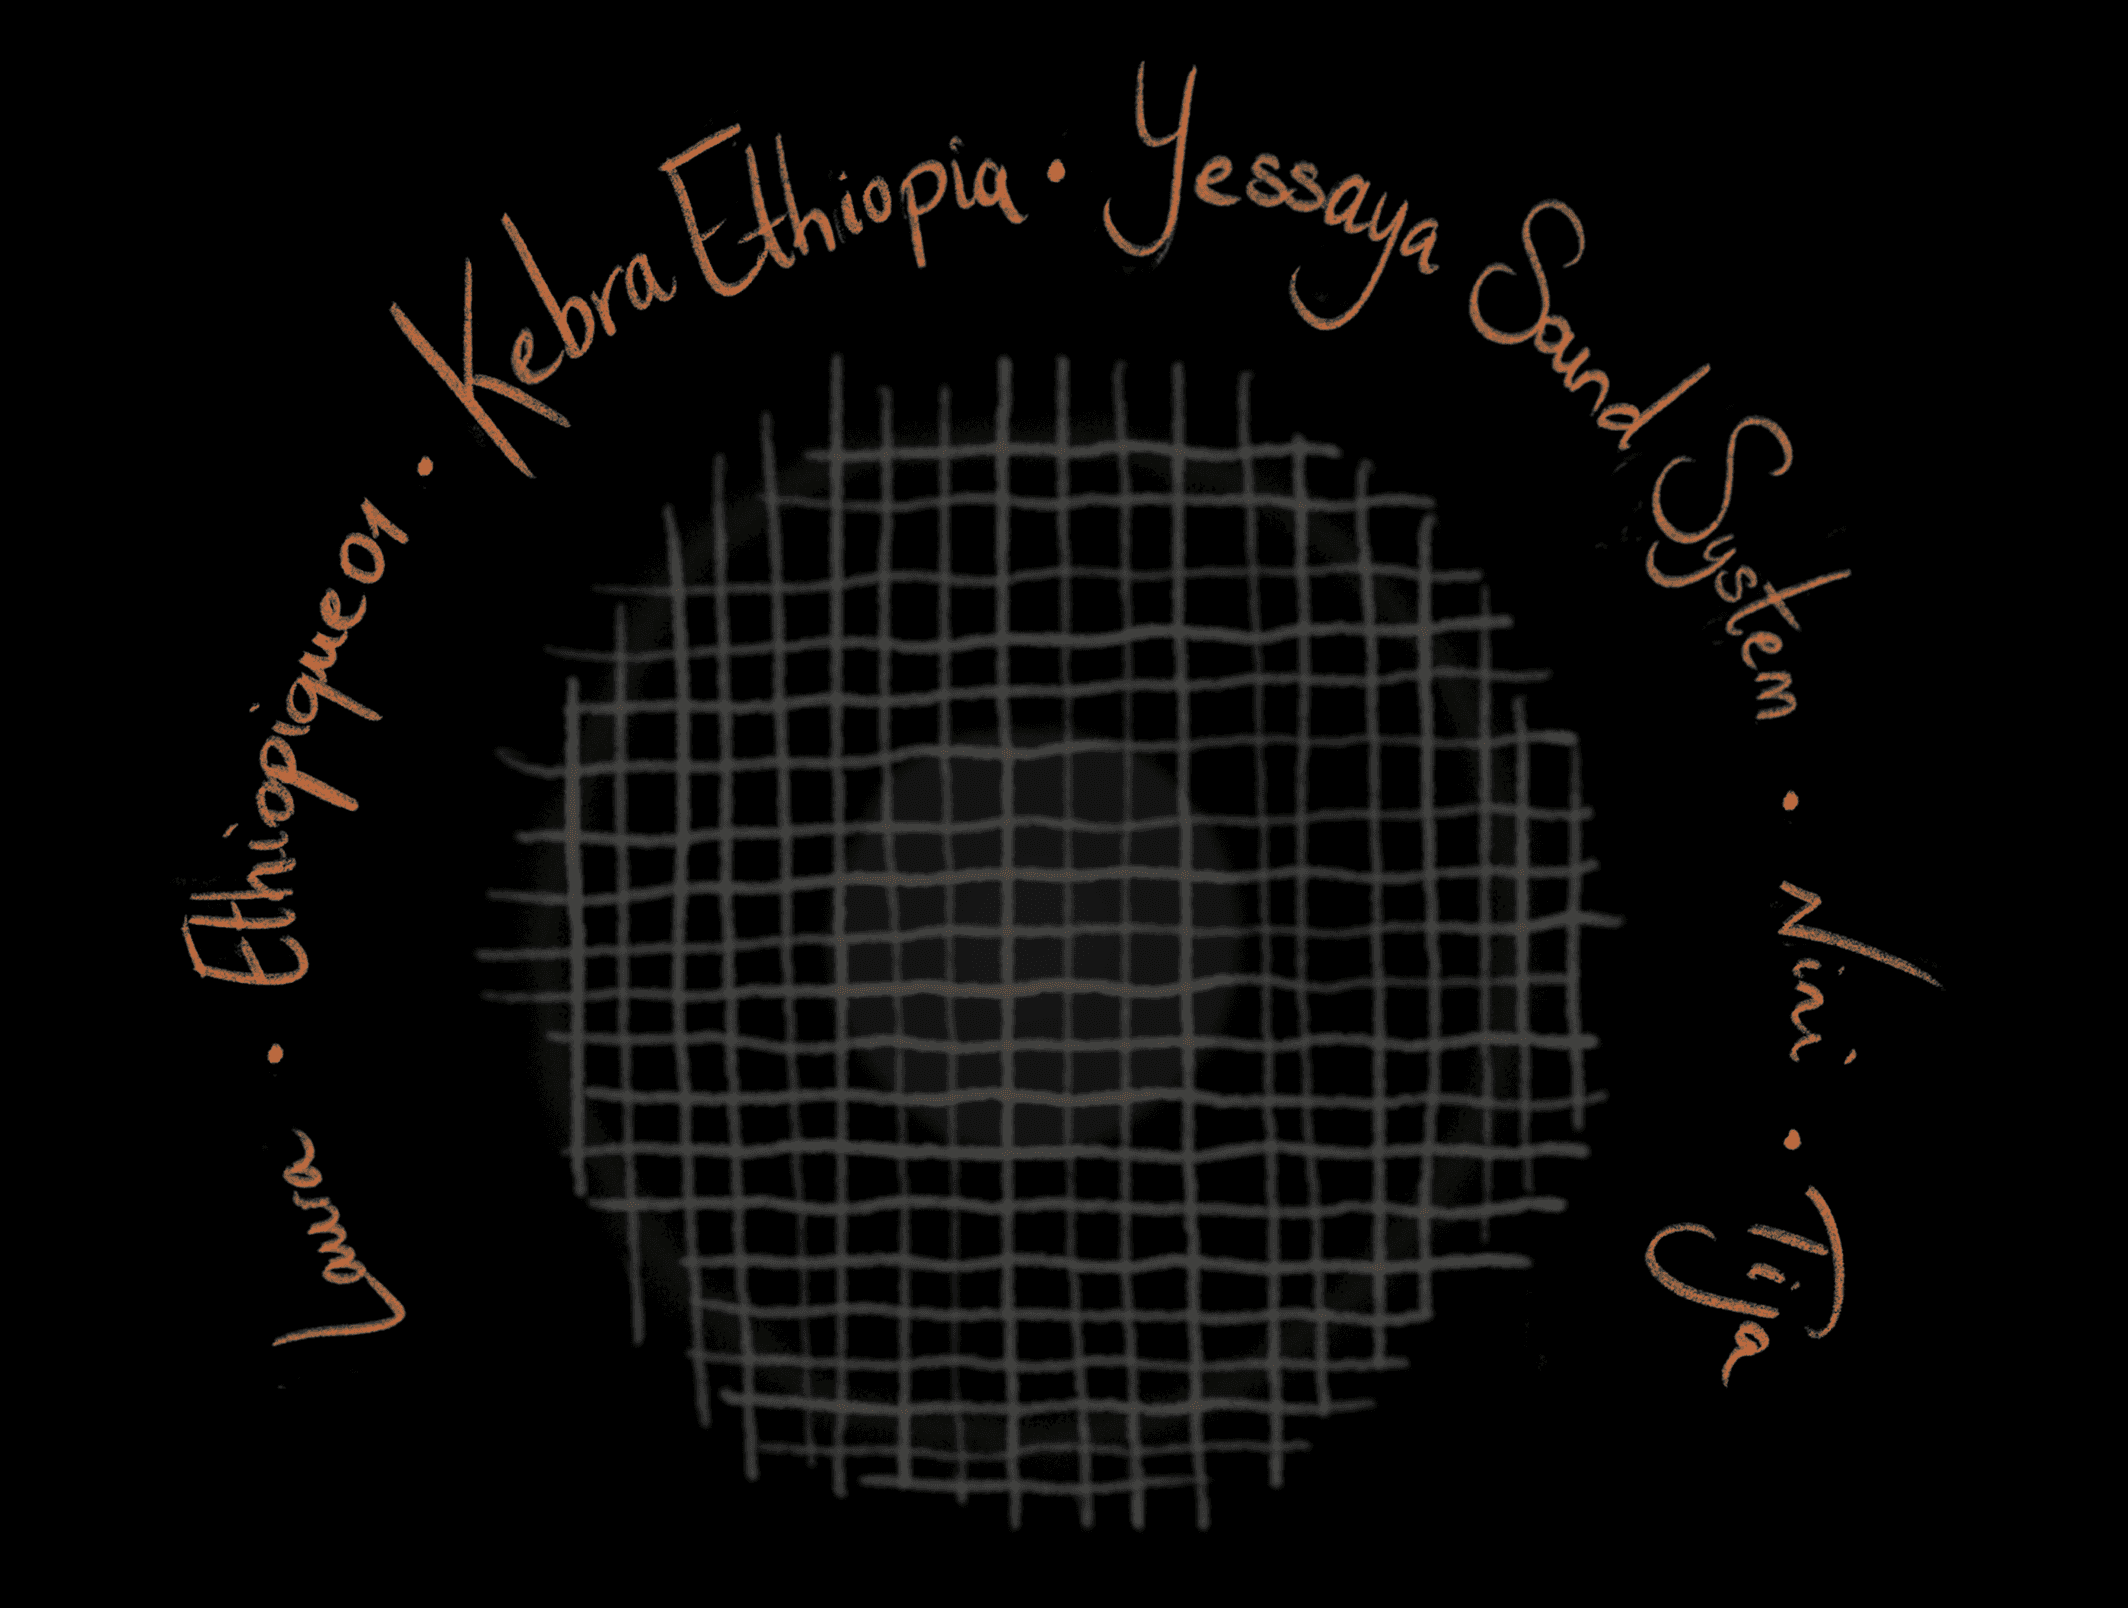 Laura · Ethiopique01 · Kebra Ethiopia · Yessaya Sound System · Nini · Tija